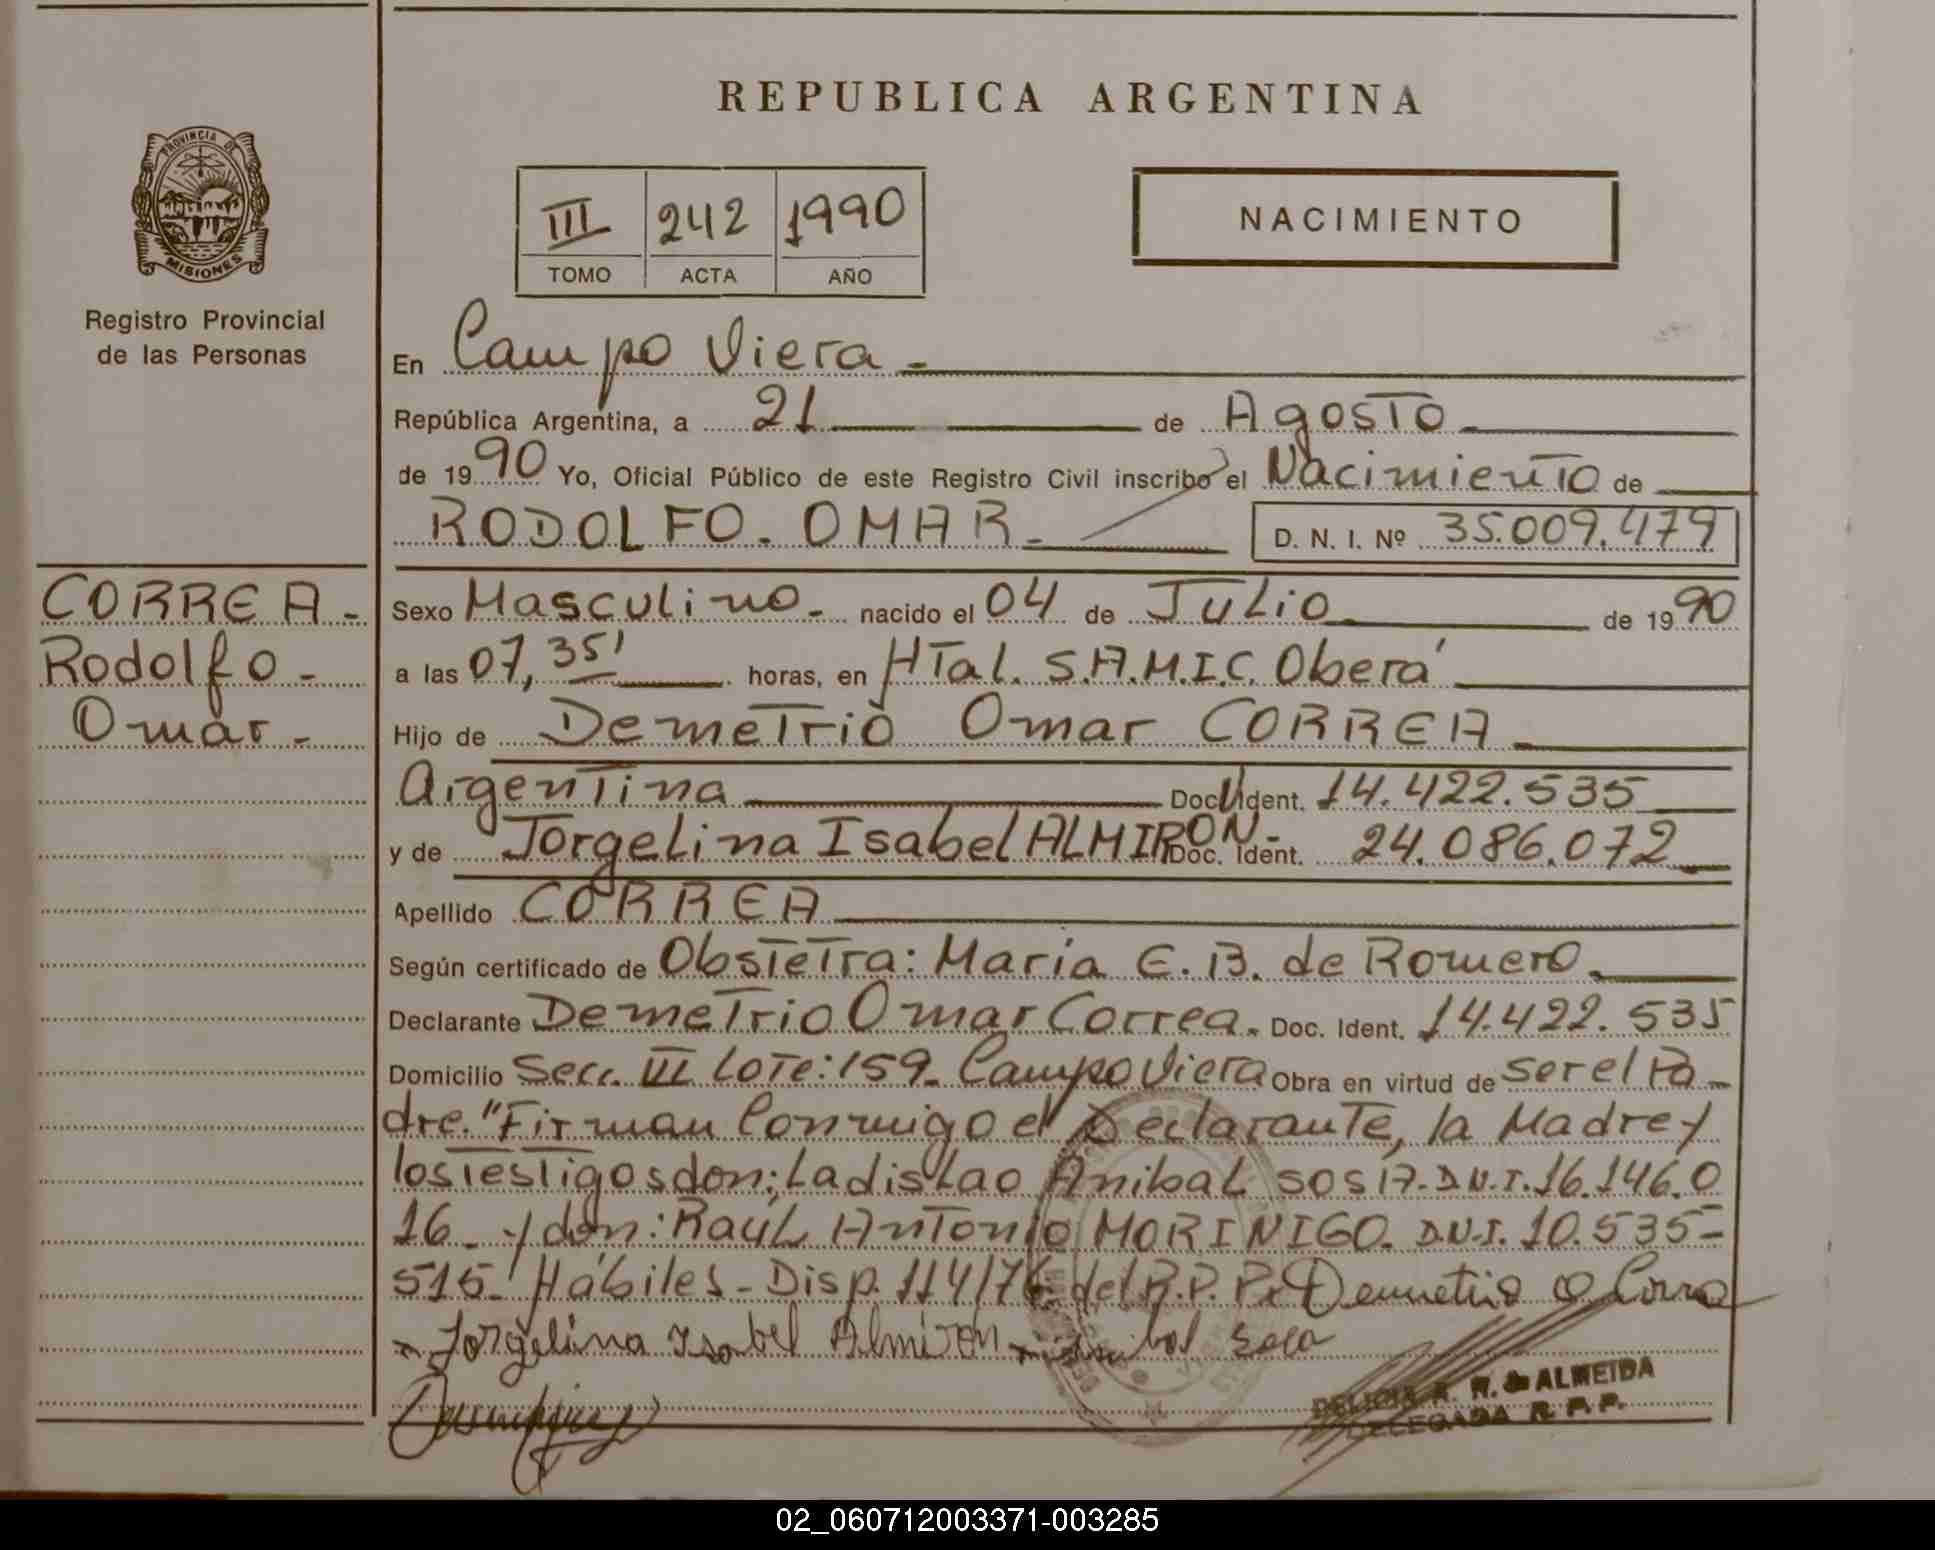 REPUBLICA ARGENTINA
PROVINCIA DE
MISIONES
Registro Provincial
de las Personas
III 242 1990
TOMO ACTA AÑO
NACIMIENTO
En Campo Viera -
República Argentina, a 21 de Agosto
de 1990 Yo, Oficial Público de este Registro Civil inscribo el Nacimiento de
RODOLFO. OMAR. D. N. I. Nº 35.009.479
CORREA -
Rodolfo -
Omar -
Sexo Masculino - nacido el 04 de Julio de 1990
a las 07,35' horas, en HTal. S.A.M.I.C. Oberá
Hijo de Demetrio Omar CORREA
Argentina Doc. Ident. 14.422.535
y de Jorgelina Isabel ALMIRON - Doc. Ident. 24.086.072
Apellido CORREA
Según certificado de Obstetra: Maria E. B. de Romero.
Declarante Demetrio Omar Correa. Doc. Ident. 14.422.535
Domicilio Secc. III Lote: 159. Campo Viera Obra en virtud de ser el Pa-
dre. "Firman Conmigo el Declarante, la Madre y
los Testigos don; Ladislao Anibal SOSA - D.N.I. 16.146.0
16 - y don: Raúl Antonio MORINIGO. D.N.I. 10.535-
515 - Hábiles - Disp. 114/76 del R.P.P. Demetrio O Correa
Jorgelina Isabel Almiron Anibal Sosa
DELICIA R. R. de ALMEIDA
DELEGADA R. P. P.
02_060712003371-003285